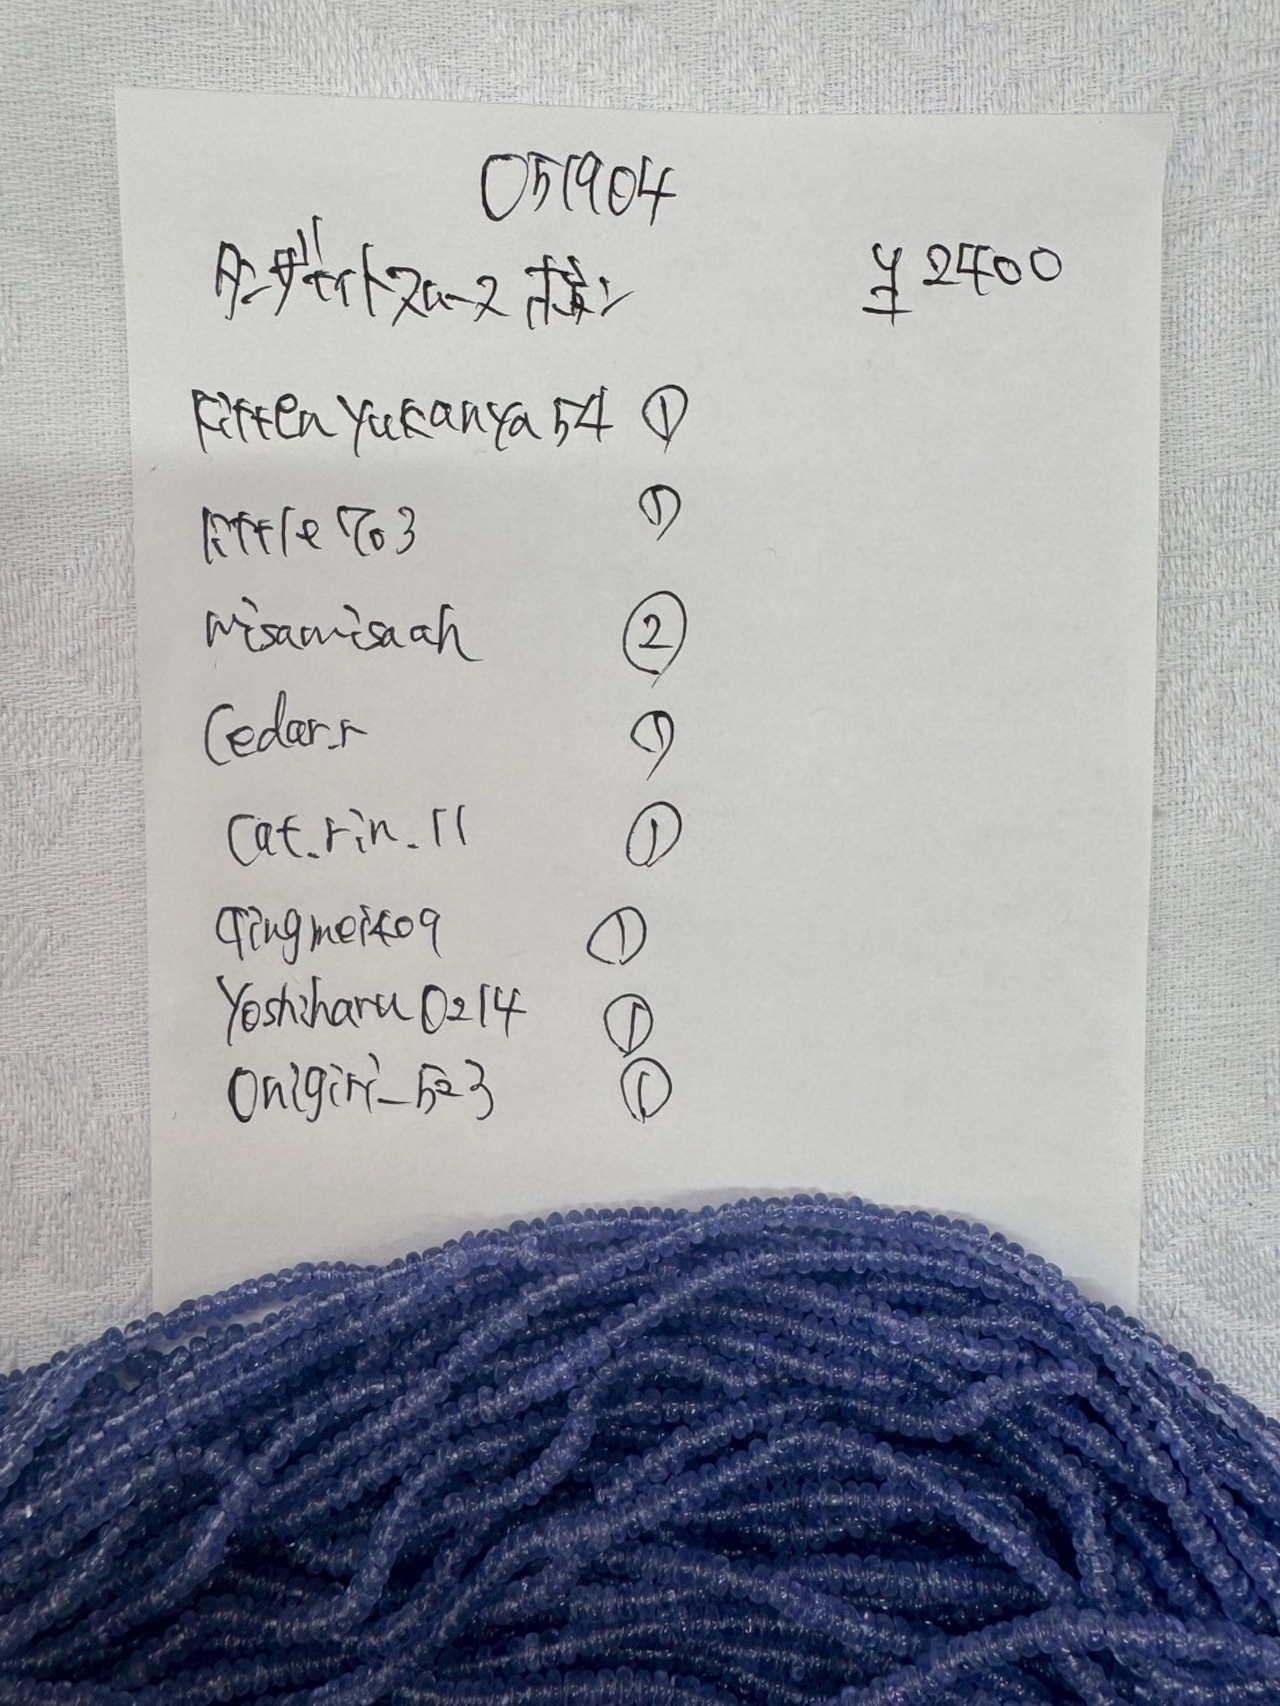 051904
タンザナイトスムースボタン ¥2400
kittenyukanya54 ①
kittle703 ①
misamisaah ②
Cedar.r ①
cat.rin.11 ①
qingmei409 ①
Yoshiharu0214 ①
Onigiri_523 ①